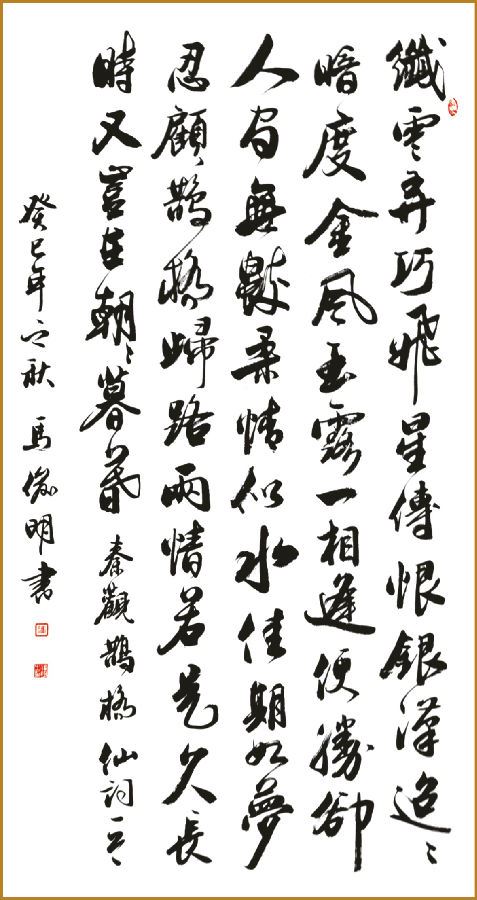 纖雲弄巧飛星傳恨銀漢迢〻
暗度金風玉露一相逢便勝卻
人間無數柔情似水佳期如夢
忍顧鵲橋歸路兩情若是久長
時又豈在朝〻暮暮 秦觀鵲橋仙詞一首
癸巳年之秋 馬俊明書